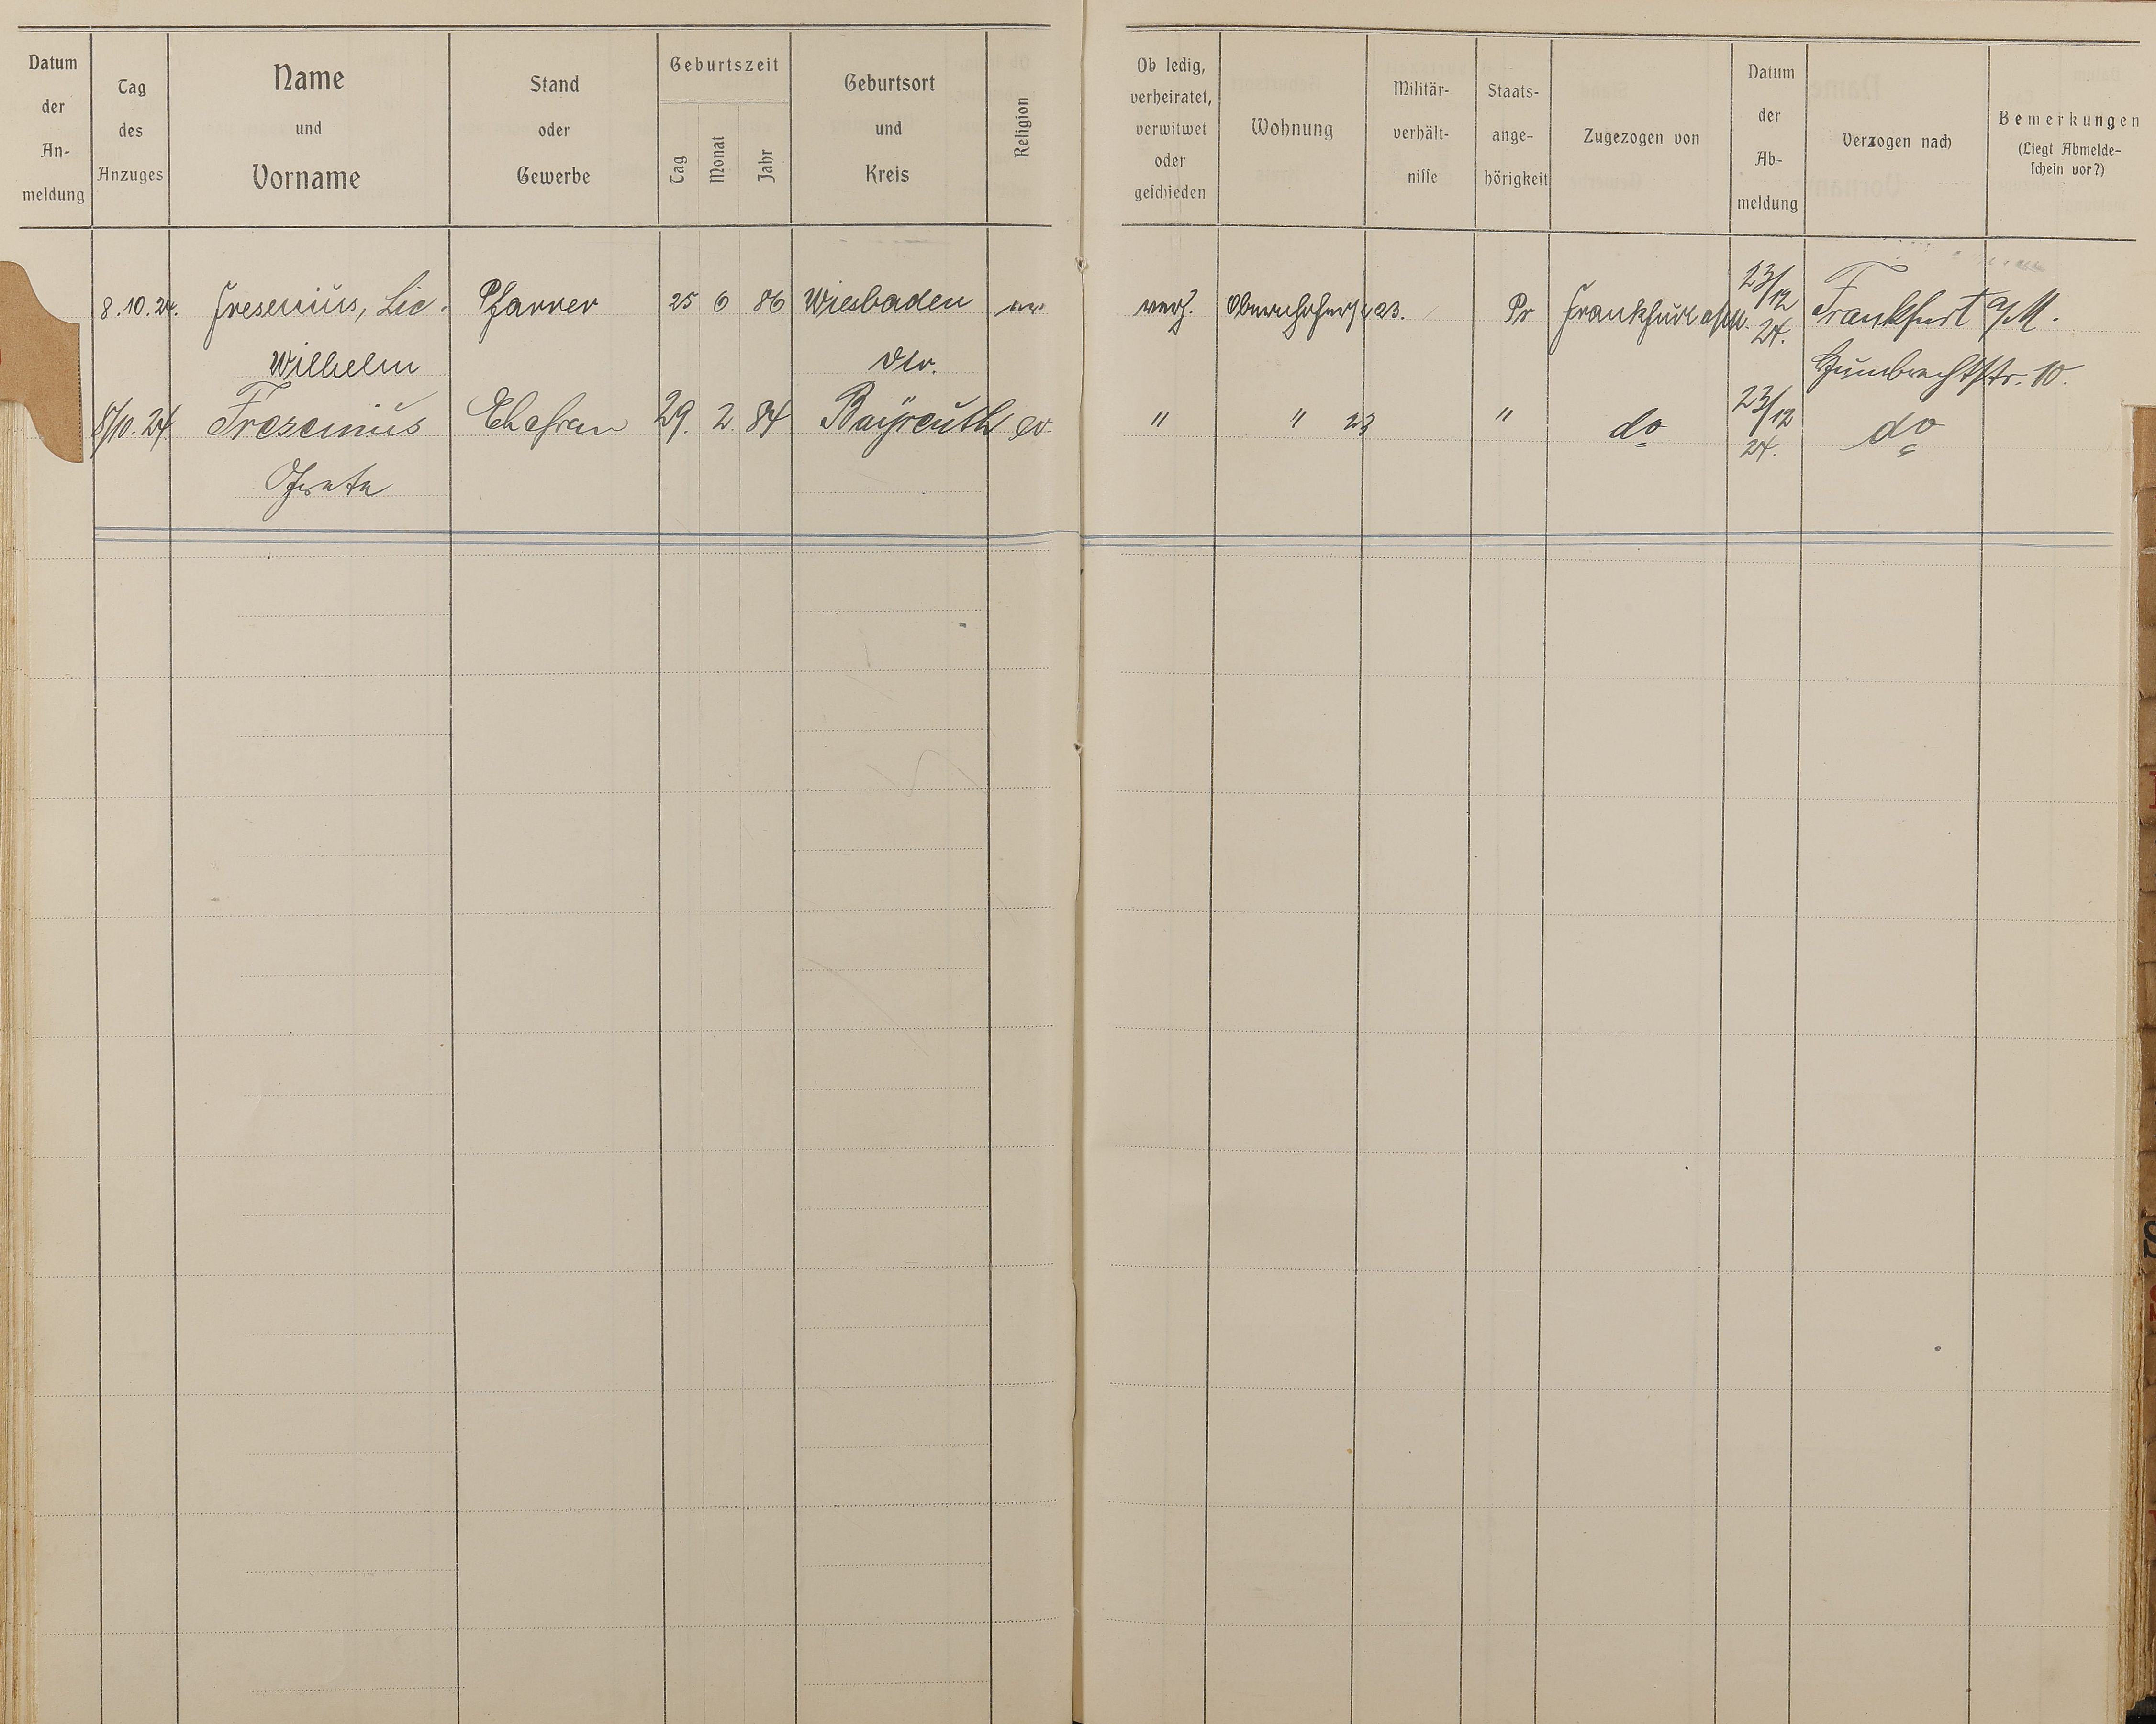 Datum der An-meldung
Tag des Anzuges
Name und Vorname
Stand oder Gewerbe
Geburtszeit
Tag Monat Jahr
Geburtsort und Kreis
Religion
Ob ledig, verheiratet, verwitwet oder geschieden
Wohnung
Militär-verhält-nisse
Staats-ange-hörigkeit
Zugezogen von
Datum der Ab-meldung
Verzogen nach
Bemerkungen
(Liegt Abmelde-schein vor?)
8.10.24. Fresenius, Lic. Pfarrer 25 6 86 Wiesbaden ev verh. 23. Pr Frankfurt a/M. 23/12 24. Frankfurt a/M.
Wilhelm Humbrachtstr. 10.
8/10. 24 Fresenius Ehefrau 29. 2 84 Bayreuth ev. " " 23 " do 23/12 24. do
Greta